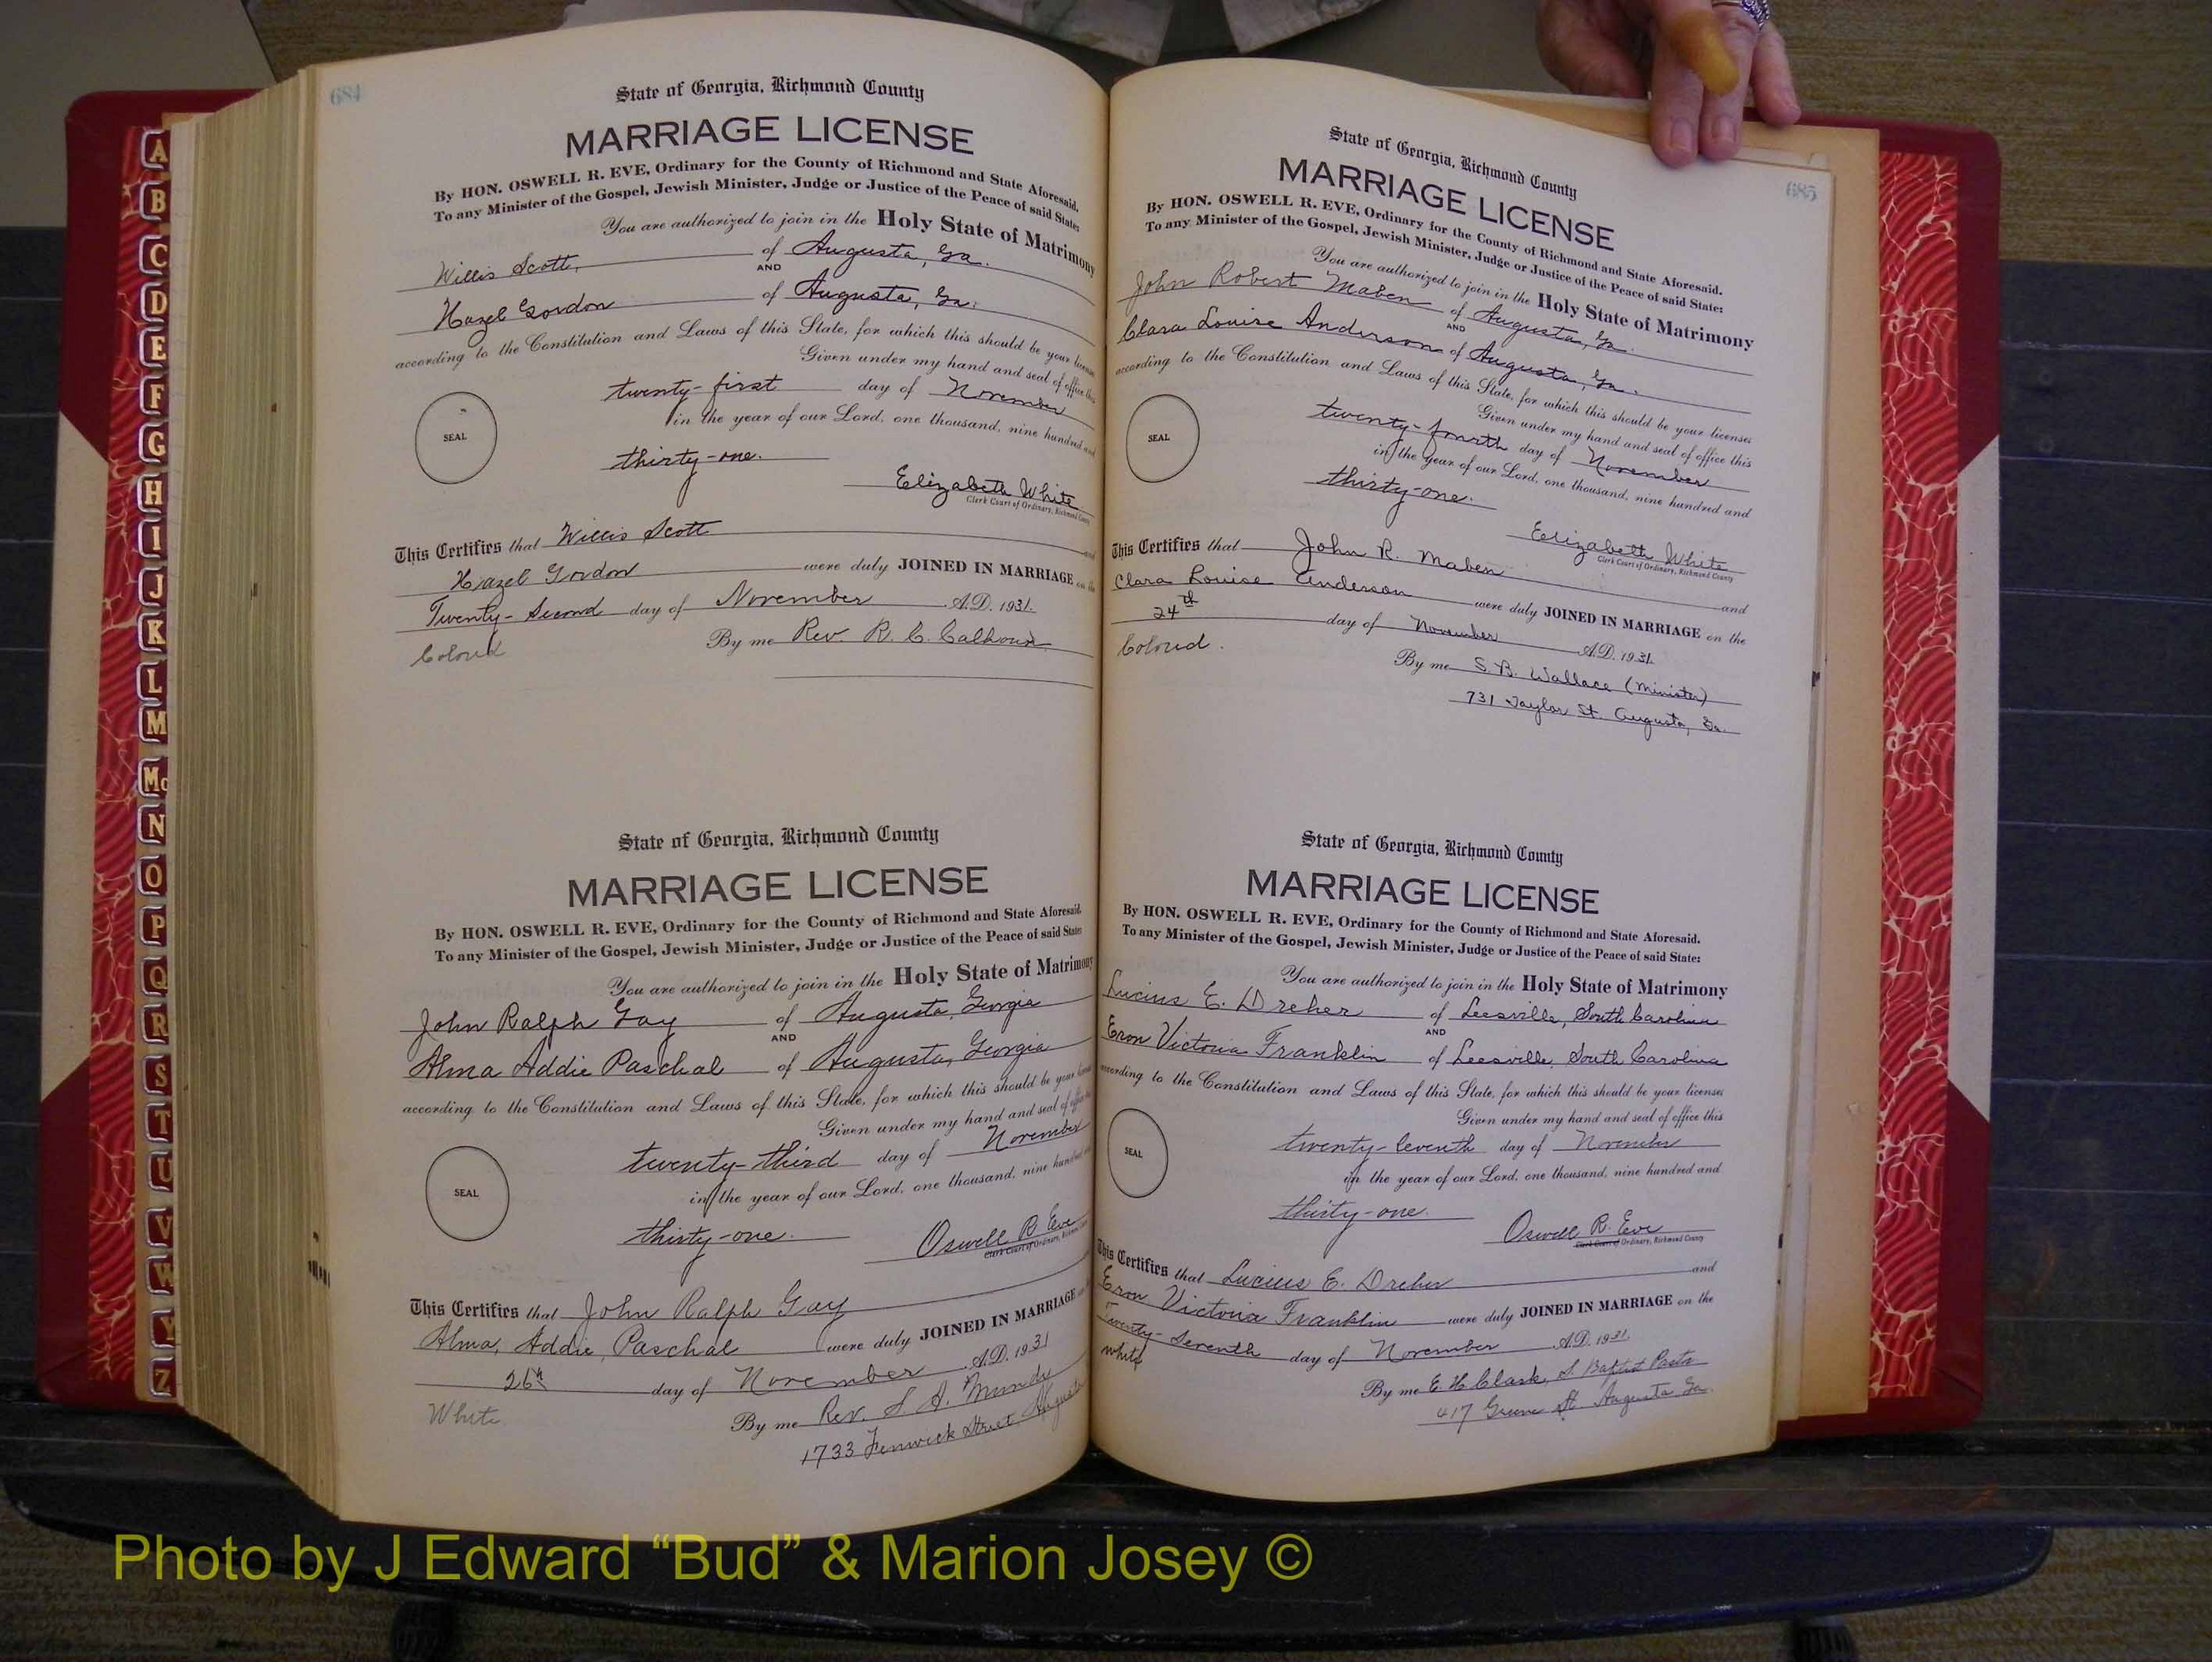 A
B
C
D
E
F
G
H
I
J
K
L
M
Mc
N
O
P
Q
R
S
T
U
V
W
Y
Z
684
State of Georgia, Richmond County
MARRIAGE LICENSE
By HON. OSWELL R. EVE, Ordinary for the County of Richmond and State Aforesaid.
To any Minister of the Gospel, Jewish Minister, Judge or Justice of the Peace of said State:
You are authorized to join in the Holy State of Matrimony
Willis Scott, of Augusta, Ga.
AND
Hazel Gordon of Augusta, Ga.
according to the Constitution and Laws of this State, for which this should be your license
Given under my hand and seal of office this
twenty-first day of November
in the year of our Lord, one thousand, nine hundred and
SEAL
thirty-one.
Elizabeth White
Clerk Court of Ordinary, Richmond County
This Certifies that Willis Scott and
Hazel Gordon were duly JOINED IN MARRIAGE on the
Twenty-Second day of November A.D. 1931.
Colored
By me Rev. R. C. Calhoun
State of Georgia, Richmond County
MARRIAGE LICENSE
By HON. OSWELL R. EVE, Ordinary for the County of Richmond and State Aforesaid.
To any Minister of the Gospel, Jewish Minister, Judge or Justice of the Peace of said State:
You are authorized to join in the Holy State of Matrimony
John Ralph Gay of Augusta, Georgia
AND
Alma Addie Paschal of Augusta, Georgia
according to the Constitution and Laws of this State, for which this should be your license
Given under my hand and seal of office this
twenty-third day of November
in the year of our Lord, one thousand, nine hundred
SEAL
thirty-one.
Oswell R. Eve
Clerk Court of Ordinary, Richmond
This Certifies that John Ralph Gay
Alma, Addie, Paschal were duly JOINED IN MARRIAGE
26th day of November A.D. 1931
White
By me Rev. S. A. Mundy
1733 Fenwick Street Augusta
685
State of Georgia, Richmond County
MARRIAGE LICENSE
By HON. OSWELL R. EVE, Ordinary for the County of Richmond and State Aforesaid.
To any Minister of the Gospel, Jewish Minister, Judge or Justice of the Peace of said State:
You are authorized to join in the Holy State of Matrimony
John Robert Maben of Augusta, Ga.
AND
Clara Louise Anderson of Augusta, Ga.
according to the Constitution and Laws of this State, for which this should be your licenses
Given under my hand and seal of office this
twenty-fourth day of November
in the year of our Lord, one thousand, nine hundred and
SEAL
thirty-one.
Elizabeth White
Clerk Court of Ordinary, Richmond County
This Certifies that John R. Maben and
Clara Louise Anderson were duly JOINED IN MARRIAGE on the
24th day of November A.D. 1931.
Colored.
By me S. B. Wallace (Minister)
731 Taylor St. Augusta, Ga.
State of Georgia, Richmond County
MARRIAGE LICENSE
By HON. OSWELL R. EVE, Ordinary for the County of Richmond and State Aforesaid.
To any Minister of the Gospel, Jewish Minister, Judge or Justice of the Peace of said State:
You are authorized to join in the Holy State of Matrimony
Lucius E. Dreher of Leesville, South Carolina
AND
Eron Victoria Franklin of Leesville, South Carolina
according to the Constitution and Laws of this State, for which this should be your licenses
Given under my hand and seal of office this
twenty-seventh day of November
in the year of our Lord, one thousand, nine hundred and
SEAL
thirty-one.
Oswell R. Eve
Clerk Court of Ordinary, Richmond County
This Certifies that Lucius E. Dreher and
Eron Victoria Franklin were duly JOINED IN MARRIAGE on the
Twenty-Seventh day of November A.D. 1931.
white
By me E H Clark, Baptist Pastor
417 Greene St. Augusta Ga.
Photo by J Edward “Bud” & Marion Josey ©